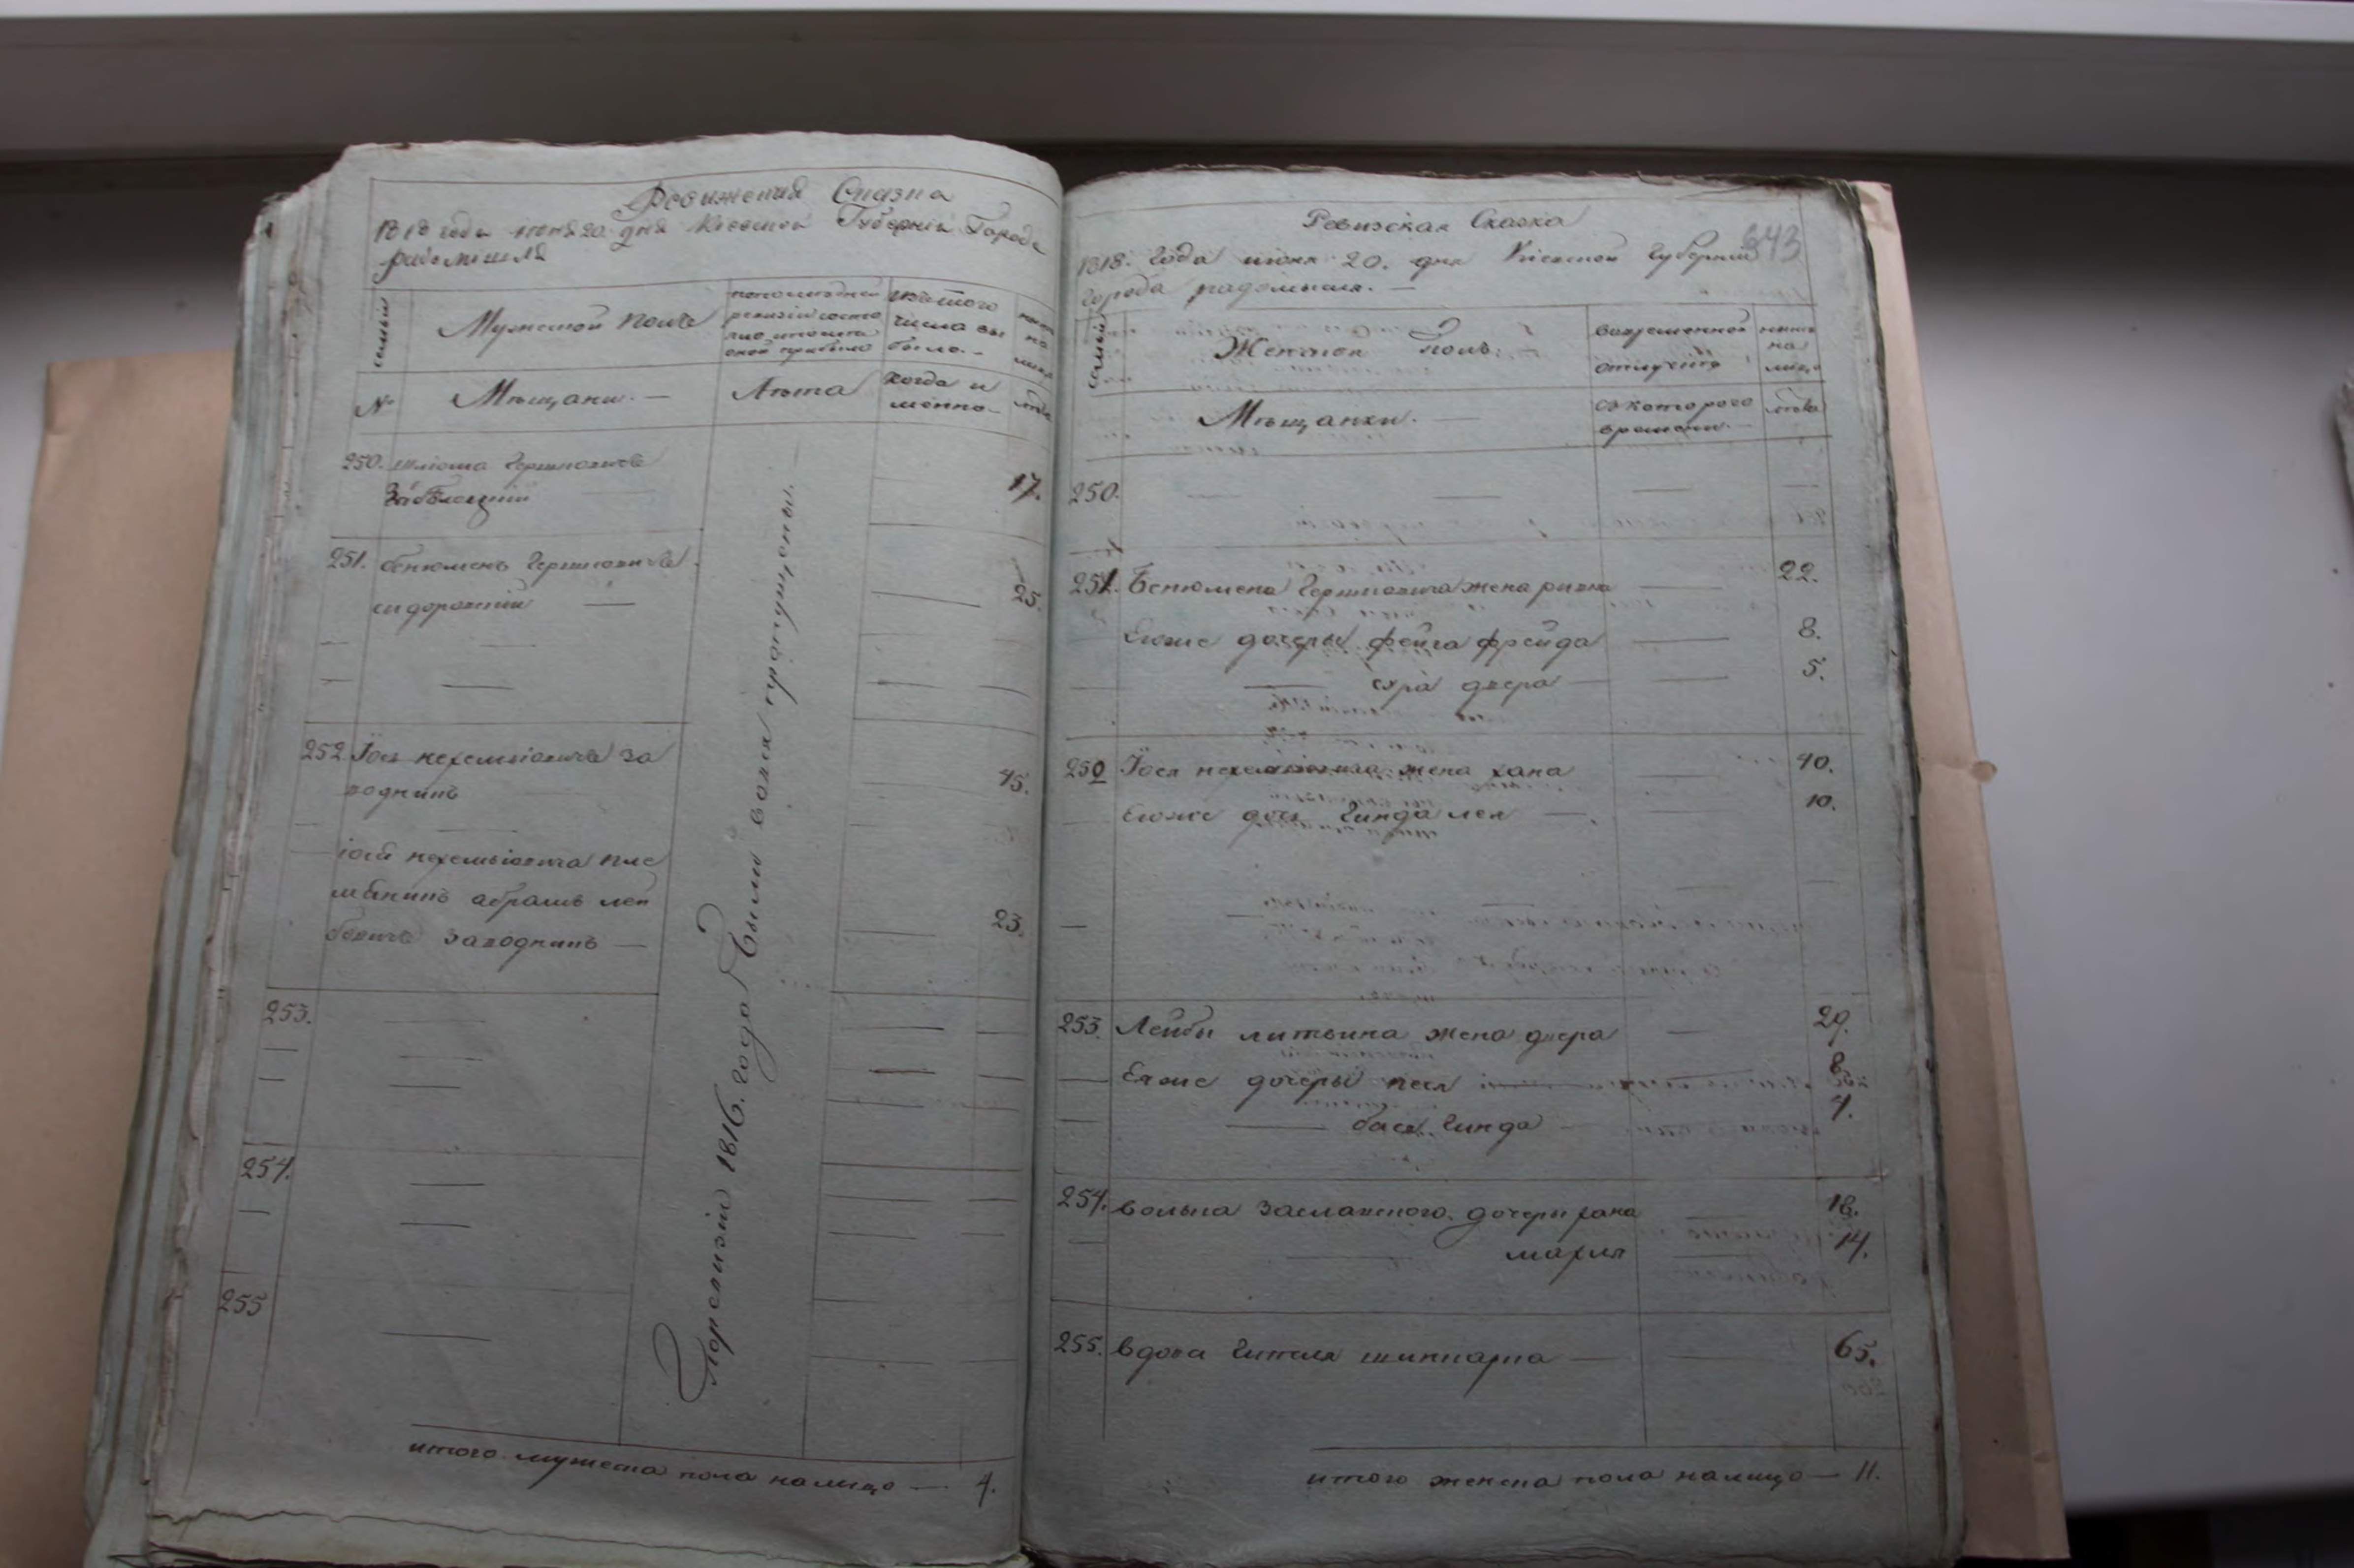 Ревижская Сказка
1818 года июня 20. дня Киевской Губернии Города
радомышля
семьи
Мужеской полъ
по последней
ревизии состо
яло и после
оной прибыло
изътого
числа вы
было.
ныне
на
лицо
№
Мѣщани. —
Лѣта
когда и
менно
лѣта
250. шліома Гершковичъ
Заблоцкій
17.
251. бенюменъ Гершковичъ
сидоровскій —
25.
252. Іось нехемьіовичъ за
воднинъ
45.
іося нехемьіовича пле
мѣнинъ абрамъ лей
бовичъ заводнинъ —
23.
253.
254.
255
По ревизіи 1816. года Были вовся пропущены.
итого мужеска пола налицо — 4.
Ревизская Сказка
643
1818. года июня 20. дня Кіевской Губерніи
города радомышля. —
семьи
Женской полъ.
вовременной
отлучкѣ
ныне
на
лицо
Мѣщанки. —
съ которого
времени
лѣта
250.
251. Бенюмена Гершковича жена ривка 22.
Егоже дочеры фейга фрейда 8.
сура двера 5.
250 Іося нехемьіовича жена хана 40.
Егоже дочь Гинда лея — 10.
253. Лейбы литвина жена двера 29.
Егоже дочеры песя 8
бася Гинда 4.
254. волька заславского дочери хана 18.
махля 14.
255. вдова Гитля шинкарка — 65.
итого женска пола налицо — 11.